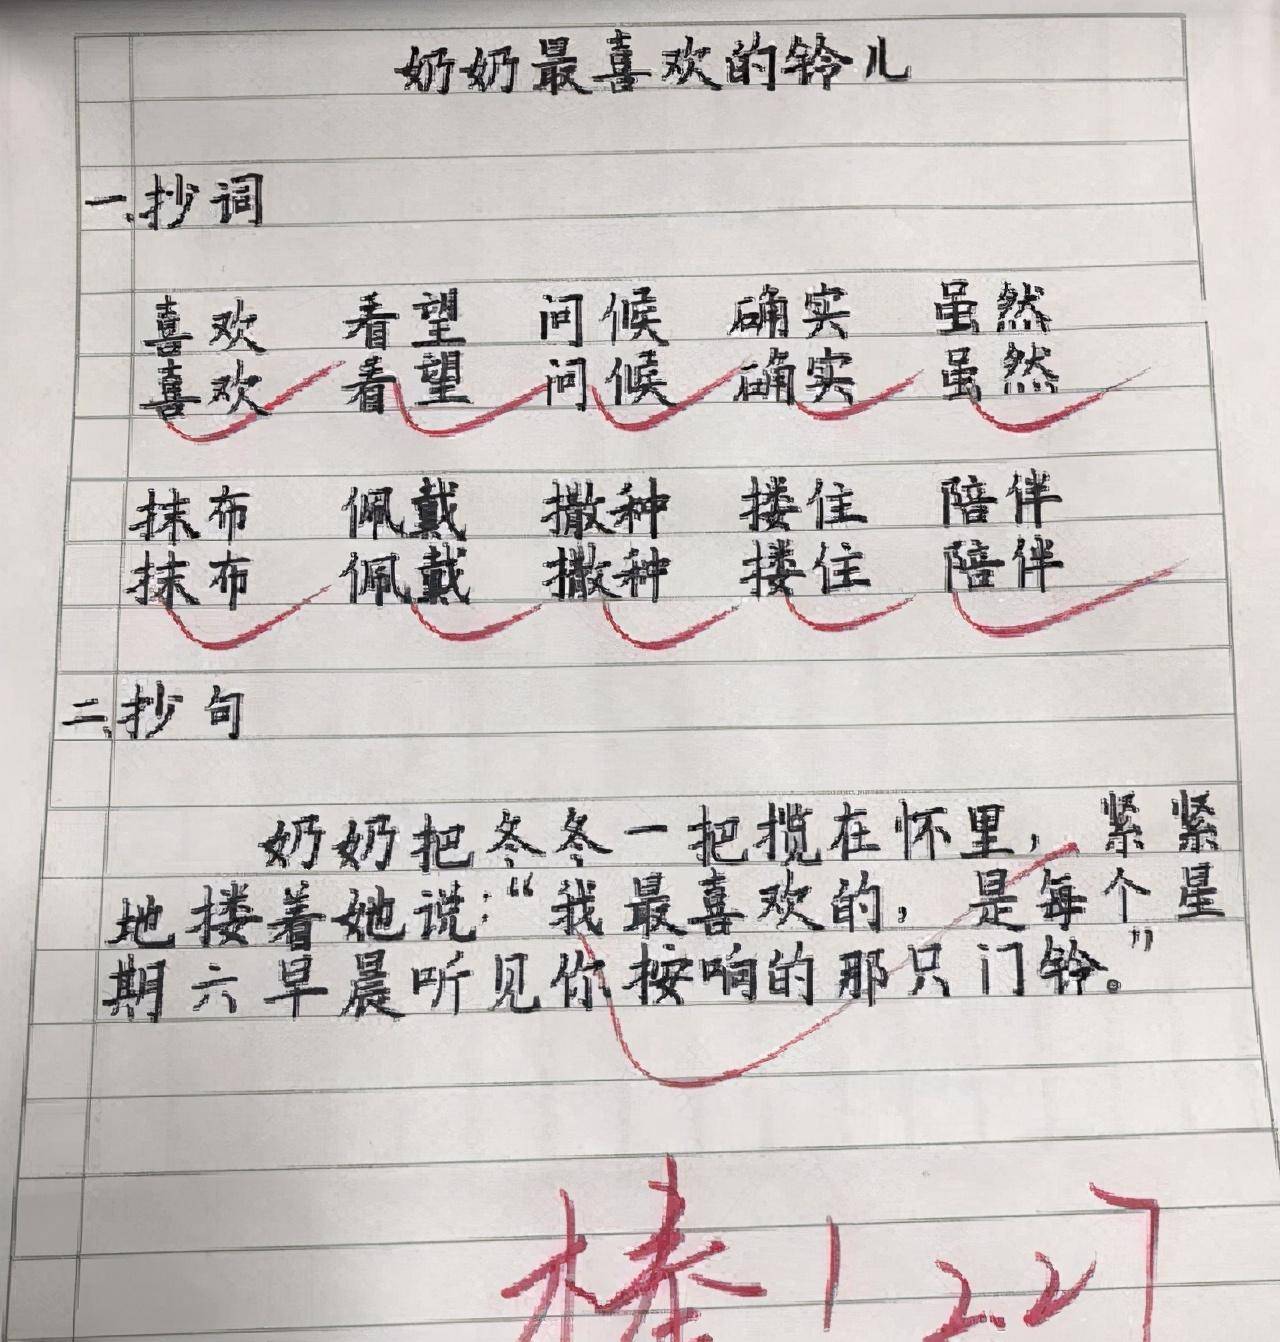 奶奶最喜欢的铃儿
一、抄词
喜欢 看望 问候 确实 虽然
喜欢 看望 问候 确实 虽然
抹布 佩戴 撒种 搂住 陪伴
抹布 佩戴 撒种 搂住 陪伴
二、抄句
奶奶把冬冬一把揽在怀里，紧紧
地搂着她说：“我最喜欢的，是每个星
期六早晨听见你按响的那只门铃。”
棒 1 2.27